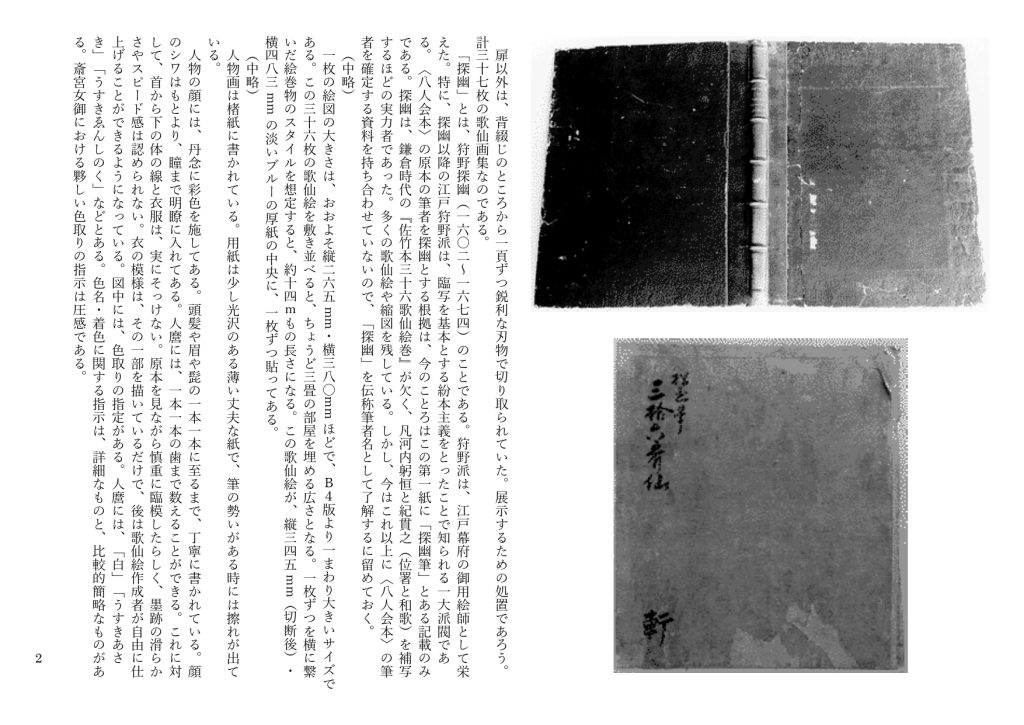 扉以外は、背綴じのところから一頁ずつ鋭利な刃物で切り取られていた。展示するための処置であろう。
計三十七枚の歌仙画集なのである。
「探幽」とは、狩野探幽（一六〇二～一六七四）のことである。狩野派は、江戸幕府の御用絵師として栄
えた。特に、探幽以降の江戸狩野派は、臨写を基本とする紛本主義をとったことで知られる一大派閥であ
る。〈八人会本〉の原本の筆者を探幽とする根拠は、今のことろはこの第一紙に「探幽筆」とある記載のみ
である。探幽は、鎌倉時代の『佐竹本三十六歌仙絵巻』が欠く、凡河内躬恒と紀貫之（位署と和歌）を補写
するほどの実力者であった。多くの歌仙絵や縮図を残している。しかし、今はこれ以上に〈八人会本〉の筆
者を確定する資料を持ち合わせていないので、「探幽」を伝称筆者名として了解するに留めておく。
（中略）
一枚の絵図の大きさは、おおよそ縦二六五mm・横三八〇mmほどで、B4版より一まわり大きいサイズで
ある。この三十六枚の歌仙絵を敷き並べると、ちょうど三畳の部屋を埋める広さとなる。一枚ずつを横に繋
いだ絵巻物のスタイルを想定すると、約十四mもの長さになる。この歌仙絵が、縦三四五mm（切断後）・
横四八三mmの淡いブルーの厚紙の中央に、一枚ずつ貼ってある。
（中略）
人物画は楮紙に書かれている。用紙は少し光沢のある薄い丈夫な紙で、筆の勢いがある時には擦れが出て
いる。
人物の顔には、丹念に彩色を施してある。頭髪や眉や髭の一本一本に至るまで、丁寧に書かれている。顔
のシワはもとより、瞳まで明瞭に入れてある。人麿には、一本一本の歯まで数えることができる。これに対
して、首から下の体の線と衣服は、実にそっけない。原本を見ながら慎重に臨模したらしく、墨跡の滑らか
さやスピード感は認められない。衣の模様は、その一部を描いているだけで、後は歌仙絵作成者が自由に仕
上げることができるようになっている。図中には、色取りの指定がある。人麿には、「白」「うすきあさ
き」「うすきゑんしのく」などとある。色名・着色に関する指示は、詳細なものと、比較的簡略なものがあ
る。斎宮女御における夥しい色取りの指示は圧感である。
探幽筆
三拾六哥仙
軒
2